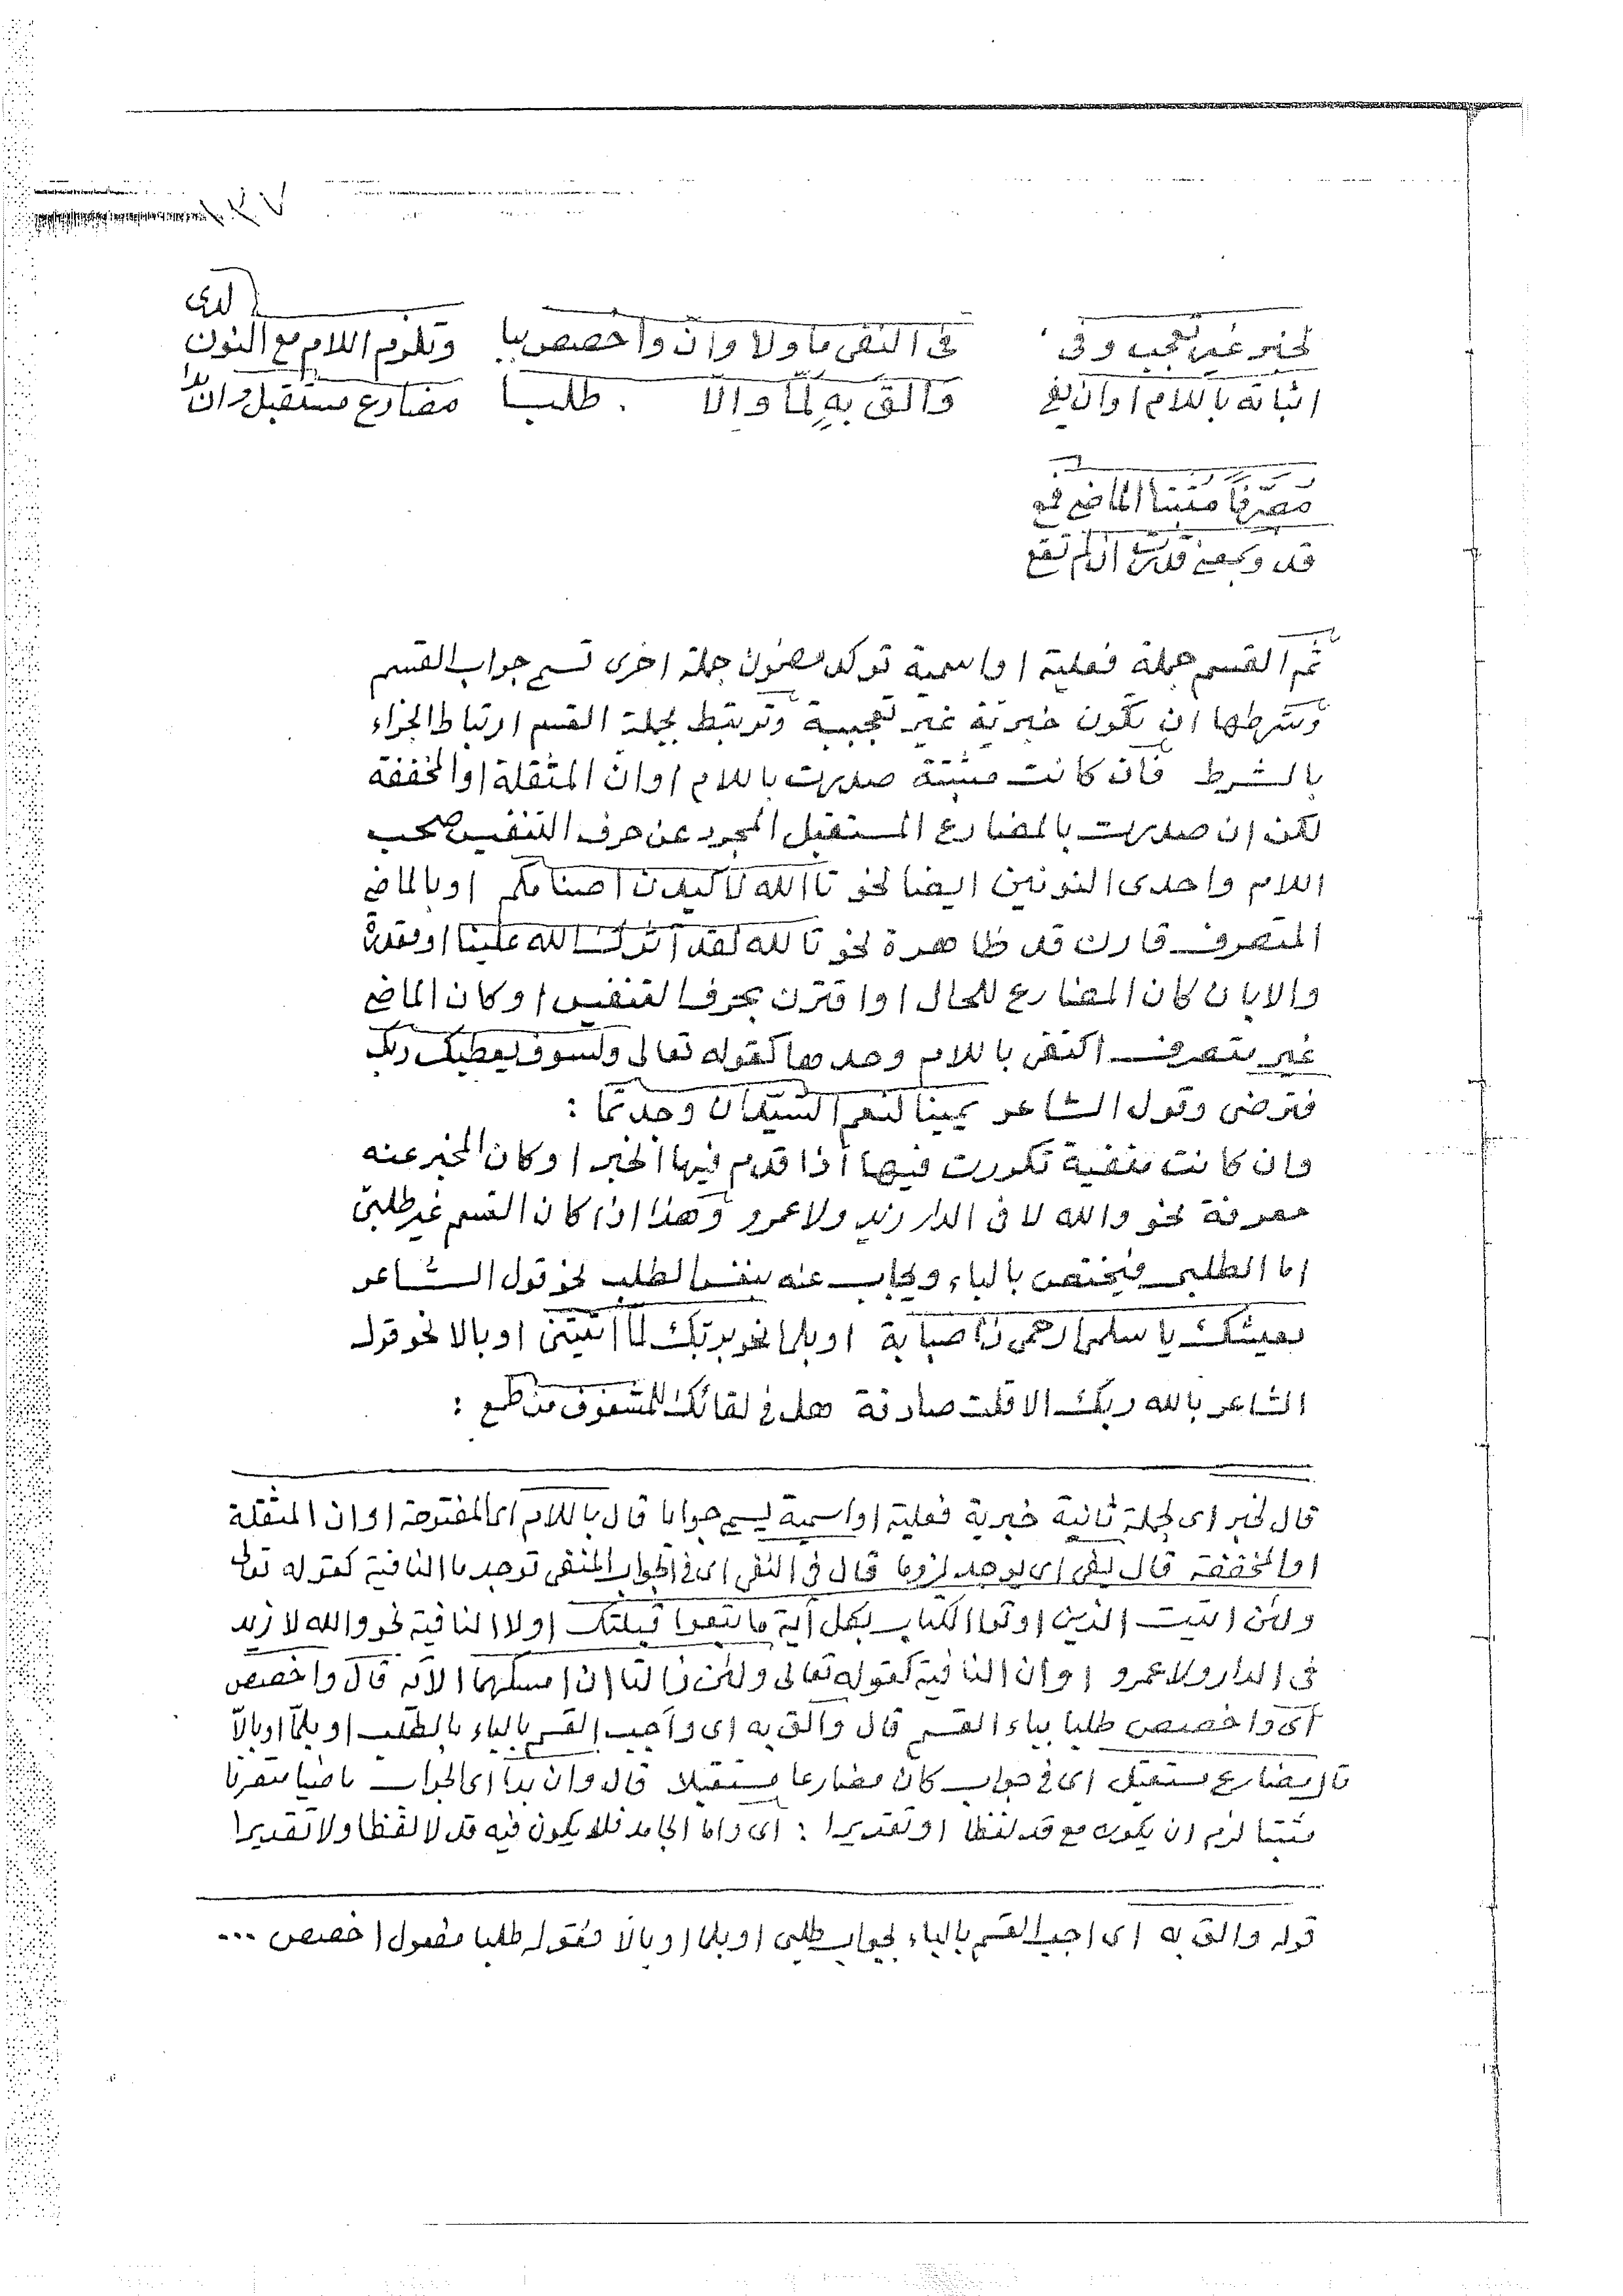 لخبر غير تعجب وفى فى النفى ما ولا وان واخصص ببا وتلزم اللام مع النون لدى
اثباته باللام او ان يفى والق به لما والا طلبا مضارع مستقبل وان بدا
مصرفا مثبتا الماضى فمع
قد وبمعنى قدرت ان لم تقع
ثم القسم جملة فعلية او اسمية توكد مضمون جملة اخرى تسمى جواب القسم
وشرطها ان تكون خبرية غير تعجبية وترتبط بجملة القسم ارتباط الجزاء
بالشرط فان كانت مثبتة صدرت باللام او ان المثقلة او المخففة
لكن ان صدرت بالمضارع المستقبل المجرد عن حرف التنفيس صحب
اللام واحدى النونين ايضا نحو تاالله لأكيدن اصنامكم او بالماضى
المتصرف قارن قد ظاهرة نحو تالله لقد آثرك الله علينا او مقدرة
والا بان كان المضارع للحال او اقترن بحرف التنفيس او كان الماضى
غير متصرف اكتفى باللام وحدها كقوله تعالى ولسوف يعطيك ربك
فترضى وقول الشاعر يمينا لنعم السيدان وجدتما :
وان كانت منفية تكررت فيها اذا قدم فيها الخبر او كان المخبر عنه
معرفة نحو والله لا فى الدار زيد ولا عمرو وهذا اذا كان القسم غير طلبى
اما الطلبى فيختص بالباء ويجاب عنه بنفس الطلب نحو قول الشاعر
بعيشك يا سلمى ارحمى ذا صبابة او بلما نحو بربك لما اتيتنى او بالا نحو قول
الشاعر بالله ربك الا قلت صادقة هل فى لقائك للمشغوف من طمع :
قال لخبر اى لجملة ثانية خبرية فعلية او اسمية يسمى جوابا قال باللام اى المفتوحة او ان المثقلة
او المخففة قال يفى اى يوجد لزوما قال فى النفى اى فى الجواب المنفى توجد ما النافية كقوله تعالى
ولئن اتيت الذين اوتوا الكتاب بكل آية ما تبعوا قبلتك او لا النافية نحو والله لا زيد
فى الدار ولا عمرو او ان النافية كقوله تعالى ولئن زالتا ان امسكهما الآية قال واخصص
أى واخصص طلبا بباء القسم قال والق به اى وأجيب القسم بالباء بالطلب او بلما او بالا
قال مضارع مستقبل اى فى جواب كان مضارعا مستقبلا قال وان بدا اى الجواب ماضيا متصرفا
مثبتا لزم ان يكون مع قد لفظا او تقديرا : اى واما الجامد فلا يكون فيه قد لا لفظا ولا تقديرا
قوله والق به اى اجيب القسم بالباء بجواب طلبى او بلما او بالا فقوله طلبا مفعول اخصص ...